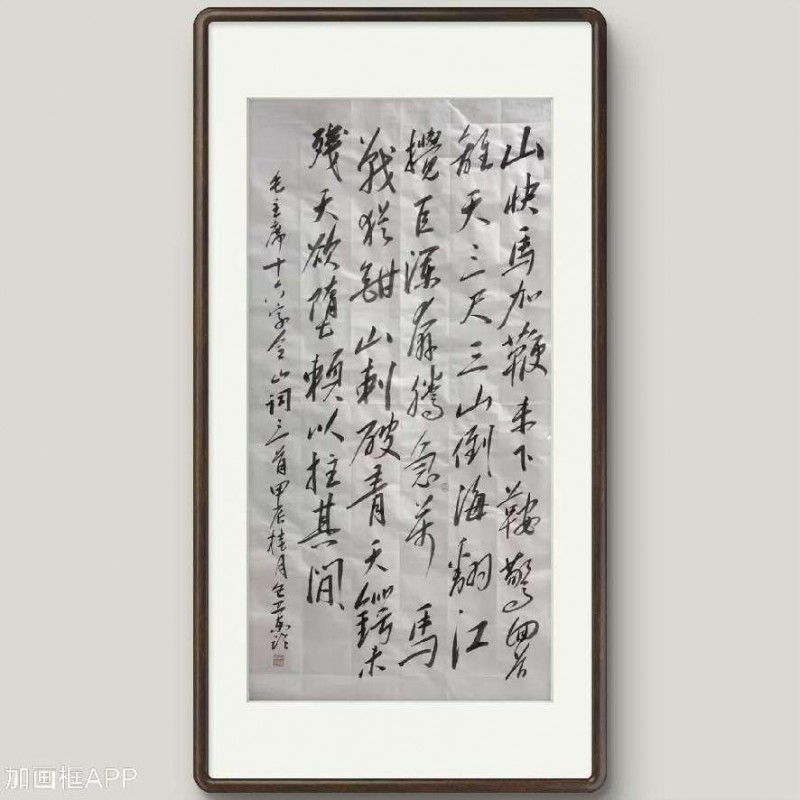 山快馬加鞭未下鞍驚回首
離天三尺三山倒海翻江
攪巨瀾奔騰急萬馬
戰猶酣山刺破青天鍔未
殘天欲墮賴以拄其間
毛主席十六字令山詞三首甲辰桂月
加画框APP